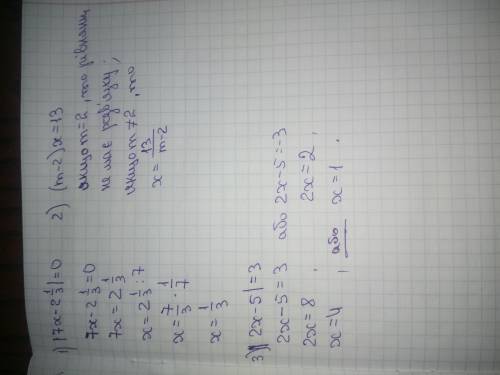 1) |7x-2 1/3|=0
7x-2 1/3=0
7x=2 1/3
x=2 1/3:7
x=7/3·1/7
x=1/3
2) (m-2)x=13
якщо m=2, то рівняння
не має розв'язку;
якщо m≠2, то
x=13/(m-2)
3) |2x-5|=3
2x-5=3 або 2x-5=-3
2x=8, 2x=2,
x=4, або x=1.